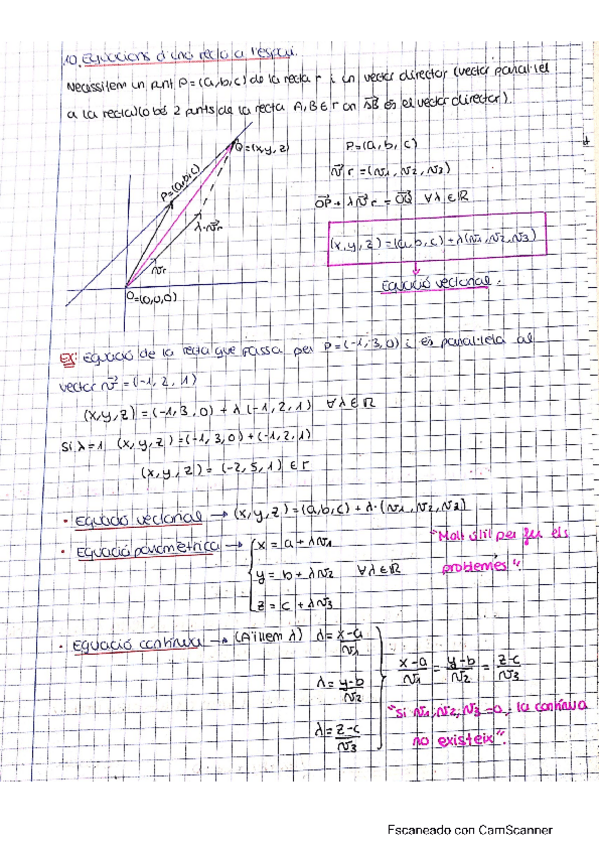 10. Equacions d'una recta a l'espai.
Necessitem un punt P=(a,b,c) de la recta r i un vector director (vector paral·lel
a la recta) (o bé 2 punts de la recta A,B∈r on AB és el vector director).
P=(a,b,c)
Q=(x,y,z)
λ·vr
vr
O=(0,0,0)
P=(a,b,c)
vr=(v1,v2,v3)
OP+λvr=OQ ∀λ∈R
(x,y,z)=(a,b,c)+λ(v1,v2,v3)
Equació vectorial.
EX: Equació de la recta que passa per P=(-1,3,0) i és paral·lela al
vector v=(-1,2,1)
(x,y,z)=(-1,3,0)+λ(-1,2,1) ∀λ∈R
Si λ=1 (x,y,z)=(-1,3,0)+(-1,2,1)
(x,y,z)=(-2,5,1)∈r
· Equació vectorial → (x,y,z)=(a,b,c)+λ·(v1,v2,v3)
· Equació paramètrica → x=a+λv1
y=b+λv2 ∀λ∈R
z=c+λv3
"Molt útil per fer els
problemes".
· Equació contínua → (Aïllem λ) λ=x-a/v1
λ=y-b/v2
λ=z-c/v3
x-a/v1=y-b/v2=z-c/v3
"Si v1,v2,v3=0, la contínua
no existeix".
Escaneado con CamScanner